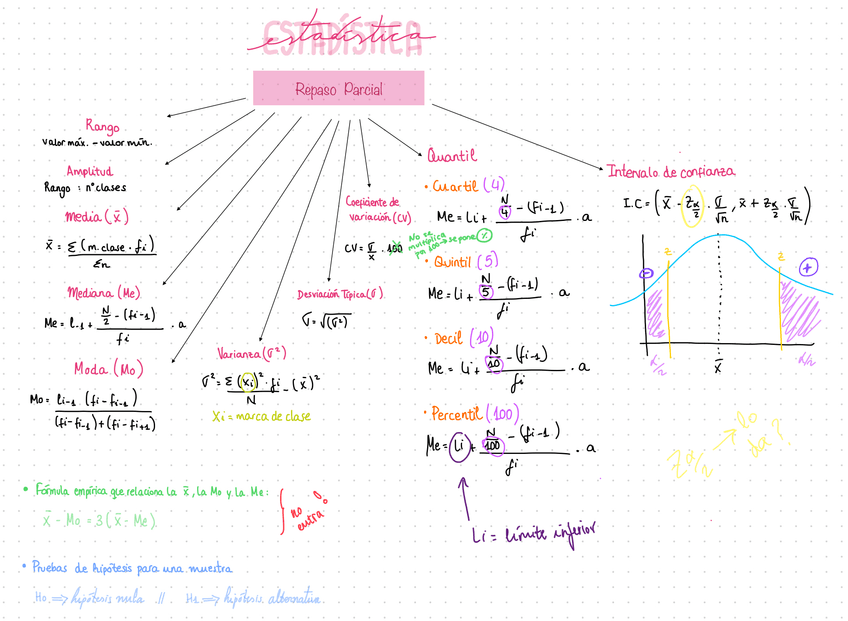 ESTADÍSTICA
estadística
Repaso Parcial
Rango
valor máx. - valor mín.
Amplitud
Rango : nº clases
Media (x̄)
x̄ = Σ (m.clase · fi)
Σn
Mediana (Me)
Me = li-1 + N/2 - (fi-1) / fi · a
Moda (Mo)
Mo = li-1 · (fi - fi-1)
(fi - fi-1) + (fi - fi+1)
Varianza (σ²)
σ² = Σ (xi)² · fi / N - (x̄)²
Xi = marca de clase
Desviación Típica (σ)
σ = √(σ²)
Coeficiente de
variación (CV)
CV = σ/x̄ · 100
No se
multiplica
por 100 → se pone %
Quantil
• Cuartil (4)
Me = Li + N/4 - (fi-1) / fi · a
• Quintil (5)
Me = Li + N/5 - (fi-1) / fi · a
• Decil (10)
Me = Li + N/10 - (fi-1) / fi · a
• Percentil (100)
Me = Li + N/100 - (fi-1) / fi · a
Li = límite inferior
Intervalo de confianza
I.C = (x̄ - Zα/2 · σ/√n, x̄ + Zα/2 · σ/√n)
z
z
-
+
α/2
x̄
α/2
Zα/2 → Lo da?
• Fórmula empírica que relaciona la x̄, la Mo y la Me:
x̄ - Mo = 3 (x̄ - Me)
no entra!
• Pruebas de hipótesis para una muestra
Ho ⇒ hipótesis nula // H1 ⇒ hipótesis alternativa